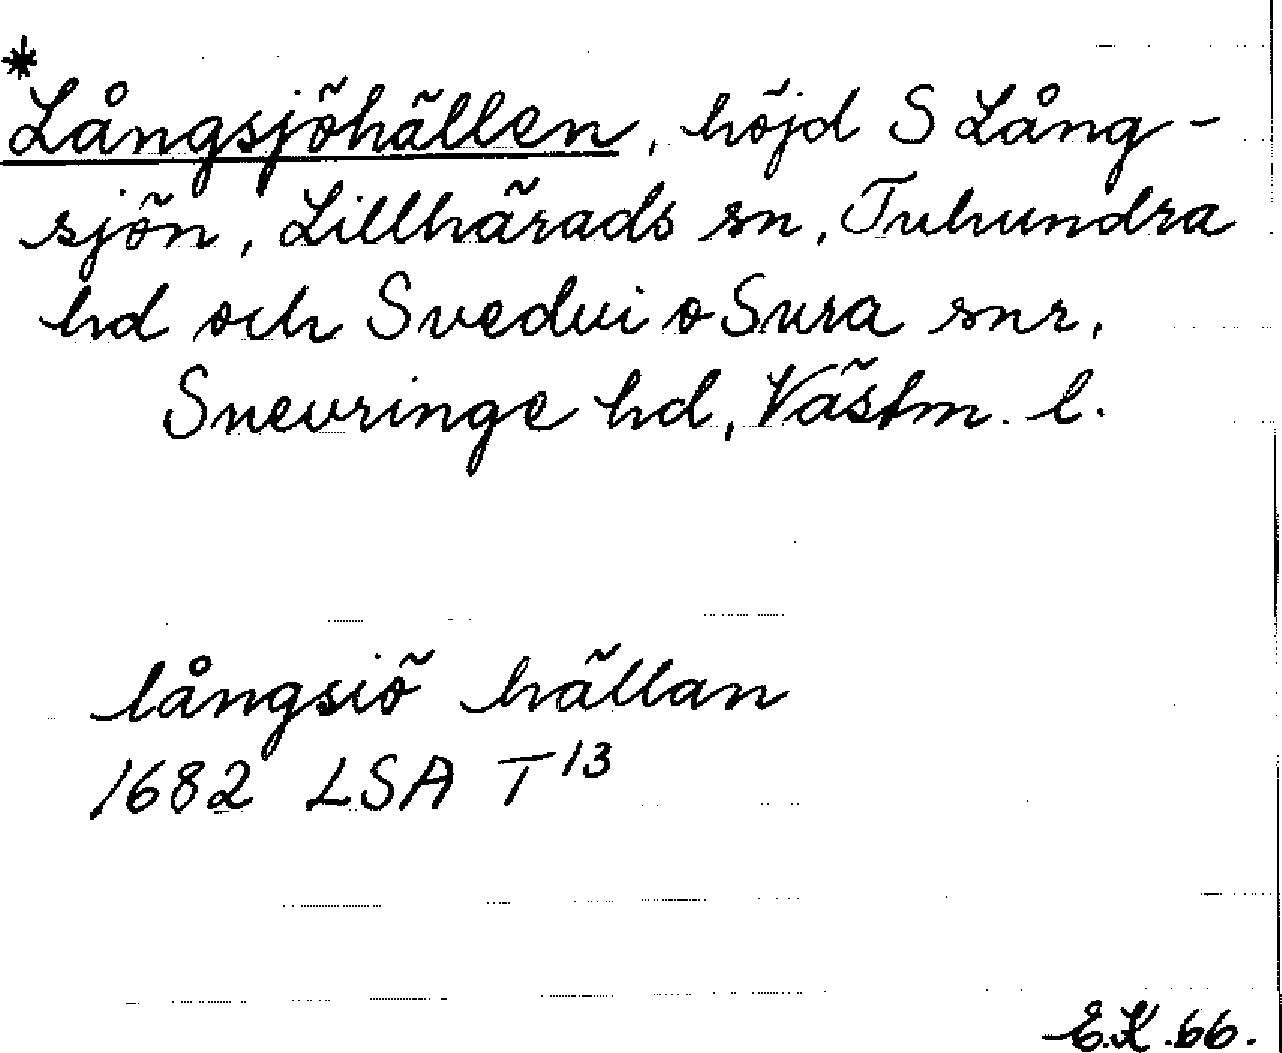 *Långsjöhällen, höjd S Lång-
sjön, Lillhärads sn, Tuhundra
hd och Svedvi o Sura snr,
Snevringe hd, Västm. l.
långsiö hällan
1682 LSA T 13
E.K. 66.